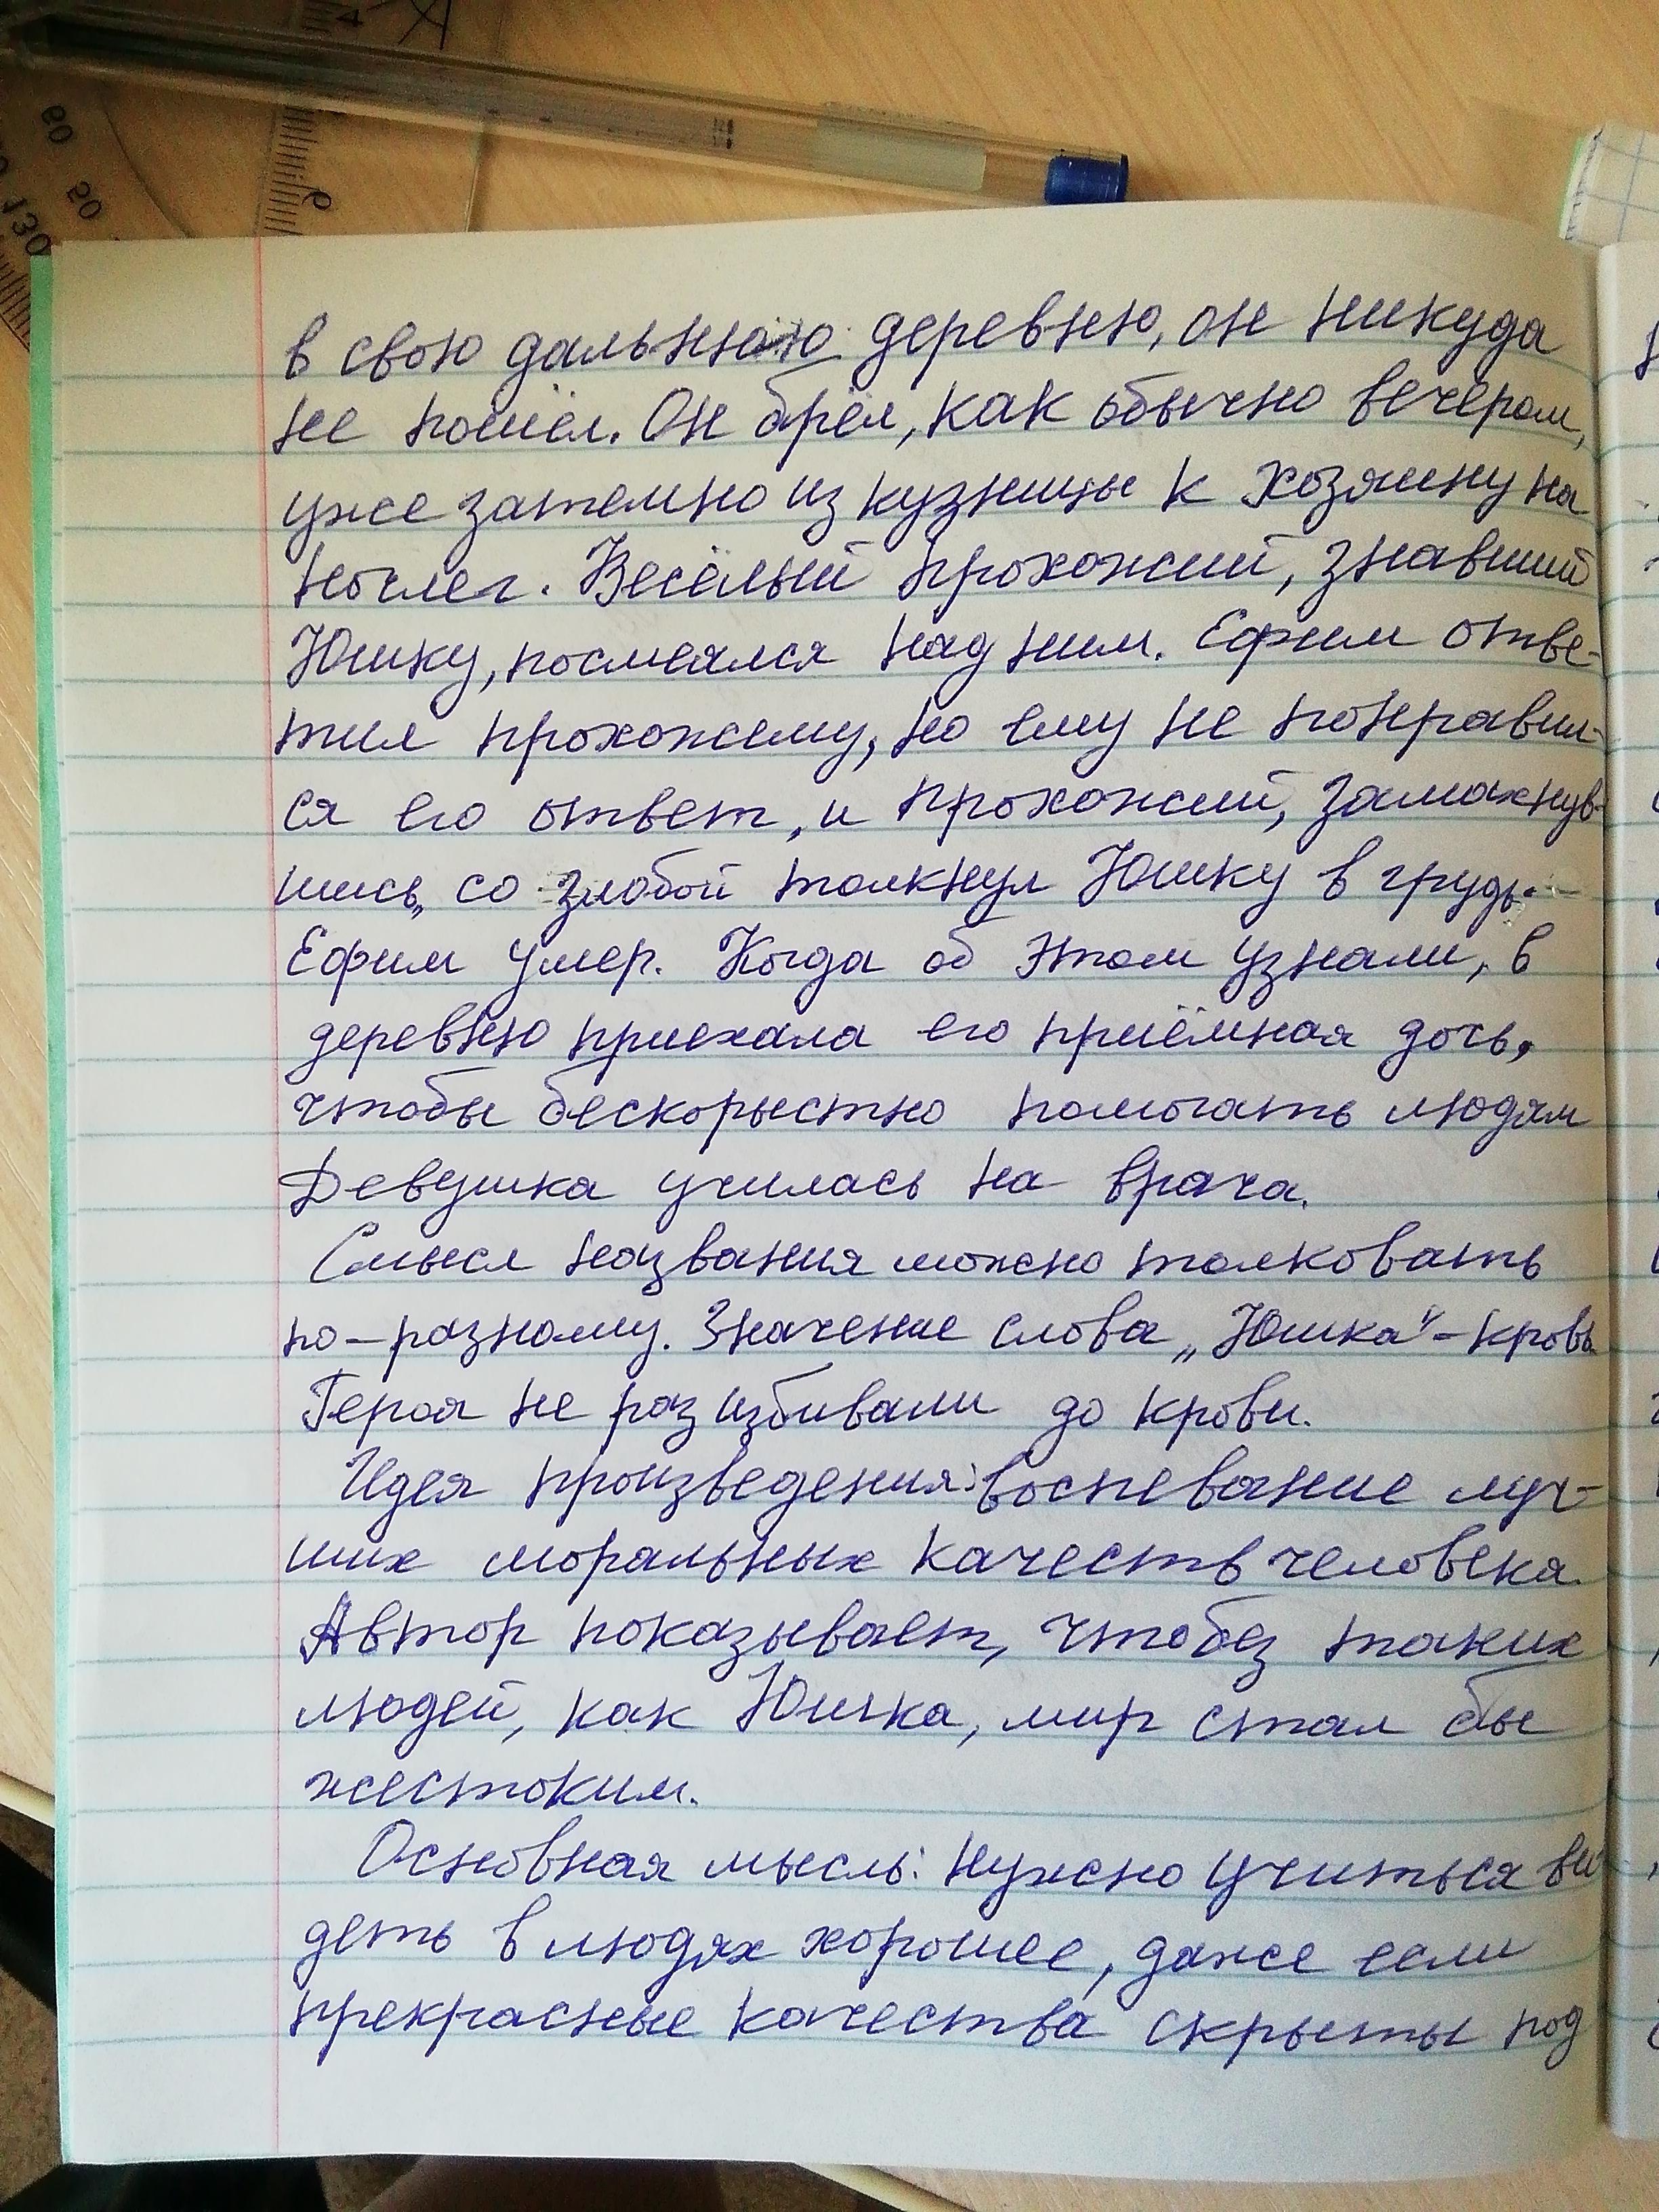 в свою дальнюю деревню, он никуда
не пошёл. Он брёл, как обычно вечером,
уже затемно из кузницы к хозяину на
ночлег. Весёлый прохожий, знавший
Юшку, посмеялся над ним. Ефим отве-
тил прохожему, но ему не понравил-
ся его ответ, и прохожий, замахнув-
шись, со злобой толкнул Юшку в грудь.
Ефим умер. Когда об этом узнали, в
деревню приехала его приёмная дочь,
чтобы бескорыстно помогать людям
Девушка училась на врача.
Смысл названия можно толковать
по-разному. Значение слова „Юшка“ - кровь.
Героя не раз избивали до крови.
Идея произведения: воспевание луч-
ших моральных качеств человека.
Автор показывает, что без таких
людей, как Юшка, мир стал бы
жестоким.
Основная мысль: нужно учиться ви
деть в людях хорошее, даже если
прекрасные качества скрыты под
4
60
50
130
9